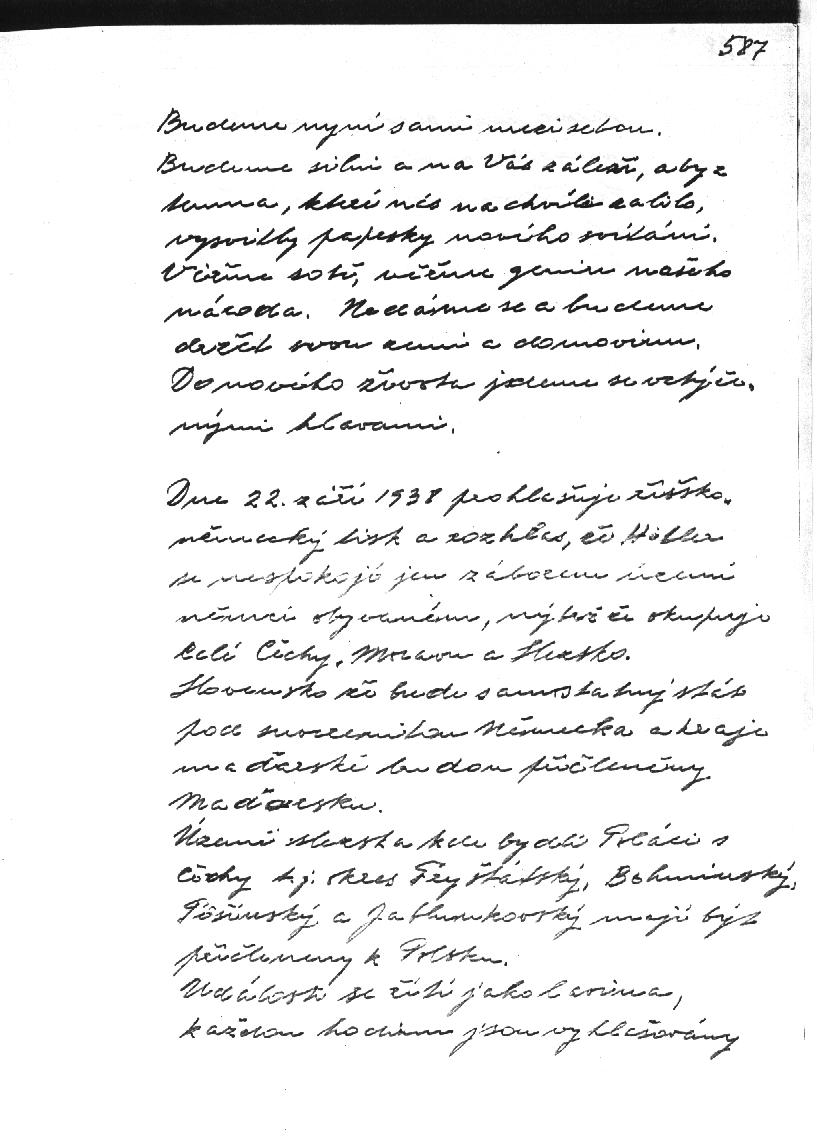 587
Budeme nyní sami mezi sebou.
Budeme silni a na Vás záleží, aby z
temna, které nás na chvíli zalilo,
vysvitly paprsky nového svítání.
Věřme sobě, věřme geniu našeho
národa. Nedáme se a budeme
držet svou zemi a domovinu.
Do nového života jdeme se vztýče-
nými hlavami.
Dne 22. září 1938 prohlašuje říšsko-
německý tisk a rozhlas, že Hitler
se nespokojí jen záborem území
němci obývaném, nýbrž že okupuje
celé Čechy, Moravu a Slezsko.
Slovensko že bude samostatný stát
pod suverenitou Německa a kraje
maďarské budou přičleněny
Maďarsku.
Území Slezska kde bydlí Poláci s
Čechy t.j. okres Fryštátský, Bohumínský,
Těšínský a Jablunkovský mají být
přičleněny k Polsku.
Události se řítí jako lavina,
každou hodinu jsou vyhlašovány